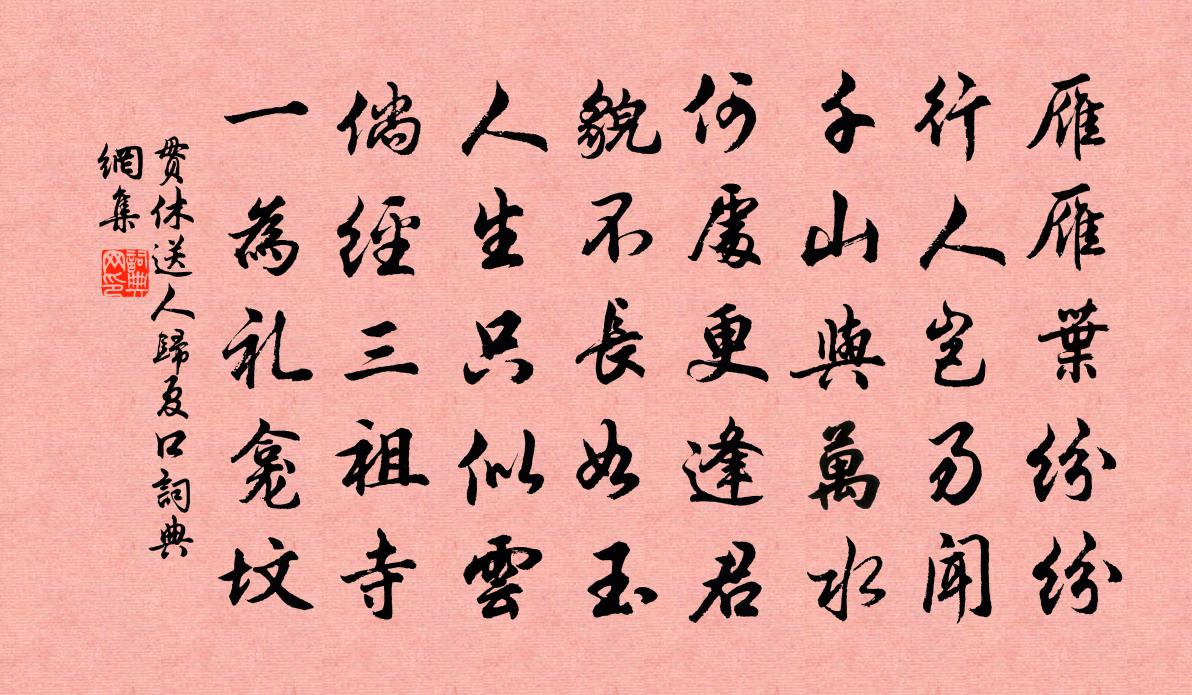 雁雁葉紛紛
行人豈易聞
千山與萬水
何處更逢君
貌不長如玉
人生只似雲
倘經三祖寺
一為礼龕坟
貫休送人歸夏口詞典
網集
詞典
网印